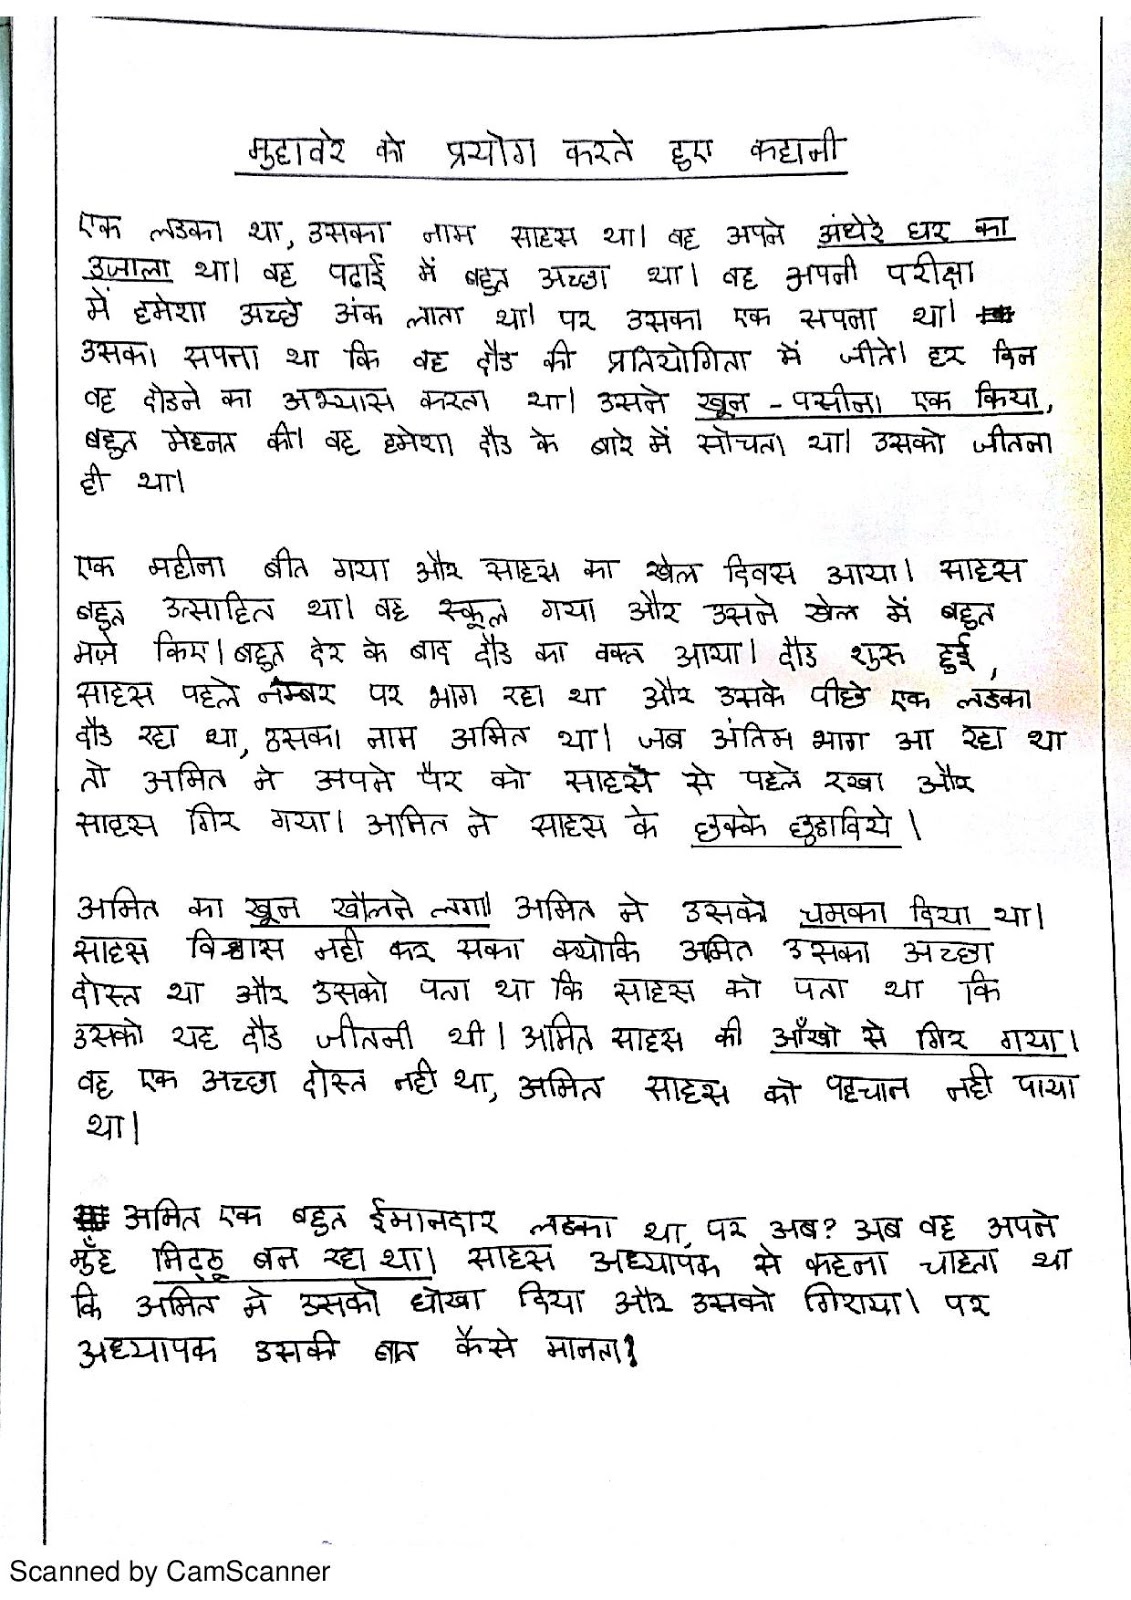 मुहावरे को प्रयोग करते हुए कहानी
एक लडका था, उसका नाम साहस था। वह अपने अंधेरे घर का
उजाला था। वह पढाई में बहुत अच्छा था। वह अपनी परीक्षा
में हमेशा अच्छे अंक लाता था। पर उसका एक सपना था।
उसका सपना था कि वह दौड की प्रतियोगिता में जीते। हर दिन
वह दोडने का अभ्यास करता था। उसने खून - पसीना एक किया,
बहुत मेहनत की। वह हमेशा दौड के बारे में सोचता था। उसको जीतना
ही था।
एक महीना बीत गया और साहस का खेल दिवस आया। साहस
बहुत उत्साहित था। वह स्कूल गया और उसने खेल में बहुत
मज़े किए। बहुत देर के बाद दौड का वक्त आया। दौड शुरू हुई,
साहस पहले नम्बर पर भाग रहा था और उसके पीछे एक लडका
दौड रहा था, उसका नाम अमित था। जब अंतिम भाग आ रहा था
तो अमित ने अपने पैर को साहस से पहले रखा और
साहस गिर गया। अमित ने साहस के छक्के छुडादिये।
अमित का खून खौलने लगा। अमित ने उसको चमका दिया था।
साहस विश्वास नही कर सका क्योकि अमित उसका अच्छा
दोस्त था और उसको पता था कि साहस को पता था कि
उसको यह दौड जीतनी थी। अमित साहस की आँखो से गिर गया।
वह एक अच्छा दोस्त नही था, अमित साहस को पहचान नही पाया
था।
अमित एक बहुत ईमानदार लडका था, पर अब? अब वह अपने
मुँह मिट्ठू बन रहा था। साहस अध्यापक से कहना चाहता था
कि अमित ने उसको धोखा दिया और उसको गिराया। पर
अध्यापक उसकी बात कैसे मानता?
Scanned by CamScanner